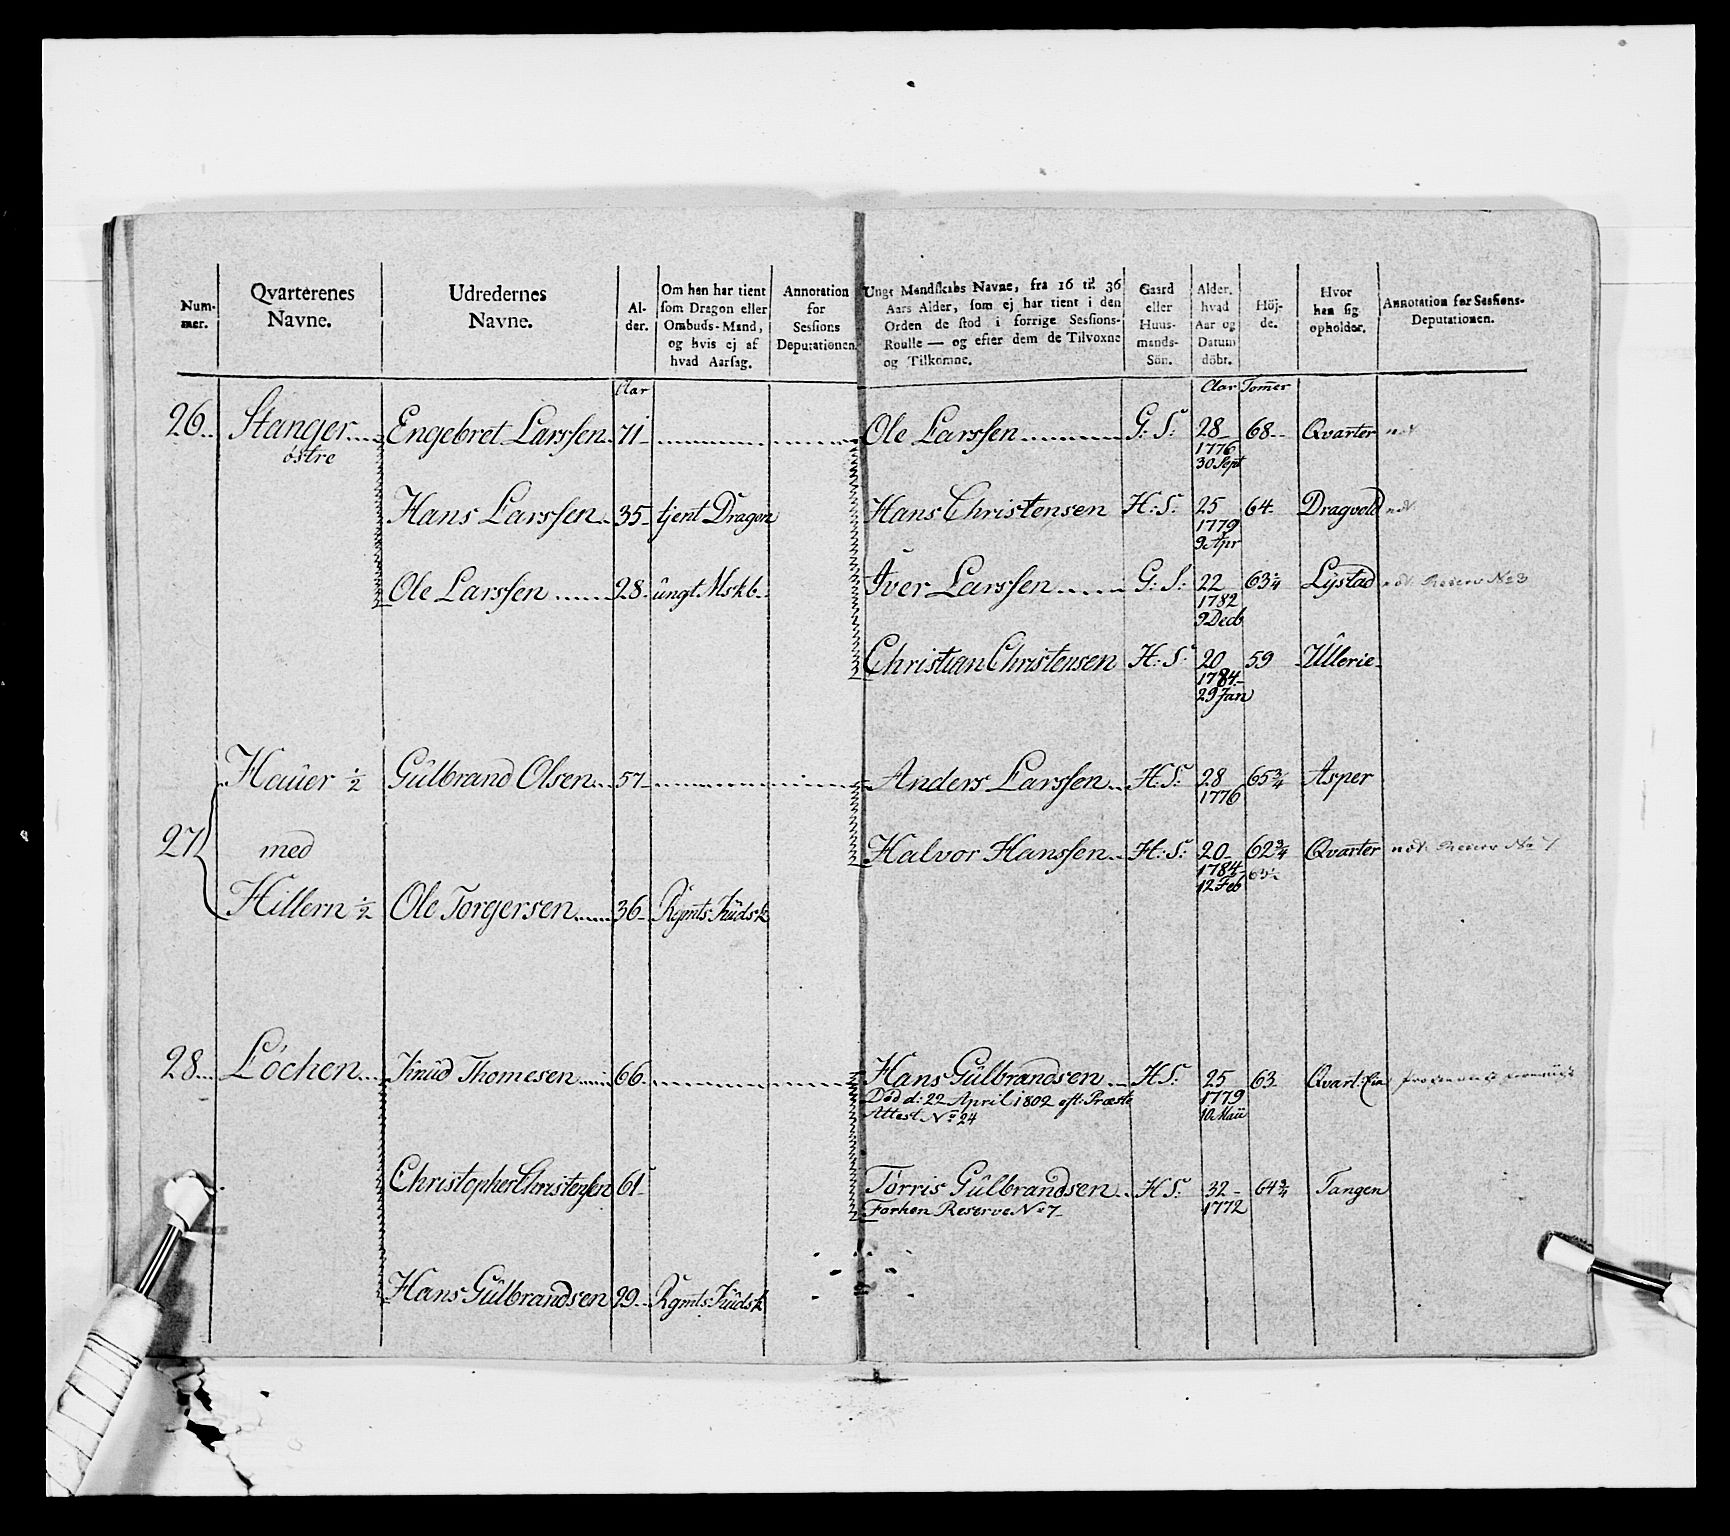 Num-
mer.
Qvarterenes
Navne.
Udredernes
Navne.
Al-
der.
Om han har tient
som Dragon eller
Ombuds-Mand,
og hvis ej af
hvad Aarsag.
Annotation
for
Sessions
Deputationen.
Ungt Mandskabs Navne, fra 16 til 36
Aars Alder, som ej har tient i den
Orden de stod i forrige Sessions-
Roulle — og efter dem de Tilvoxne
og Tilkomne.
Gaard
eller
Huus-
mands-
Sön.
Alder,
hvad
Aar og
Datum
döbt.
Höj-
de.
Hvor
han sig
opholder.
Annotation for Sessions-
Deputationen.
Aar
Aar Tom̄er
26. Stanger Engebret Larssen 71 Ole Larssen G: S: 28 68 Qvarter
østre
1776
30 Sept
Hans Larssen 35 tjent Dragon Hans Christensen H: S: 25 64 Dragvold
1779
9 Apr
Ole Larssen 28 ûngt Mskb. Iver Larssen G: S: 22 63¼ Lÿstad Reserv No 3
1782
9 Decb
Christian Christensen H: S: 20 59 Ûllerie
1784
29 Jan
Haûer ½ Gûlbrand Olsen 57 Anders Larssen H: S: 28 65¾ Asper
1776
27 med Halvor Hanssen H: S: 20 62¾ Qvarter Reserv No 7
1784 63½
12 Feb
Hillern ½ Ole Torgersen 36 Rgmts: Kûdsk
28 Löchen Knûd Thomesen 66 Hans Gûlbrandsen H S: 25 63 Qvart:
Död d: 22 April 1802 eft: Præste 1779
Attest No 24 10 Maii
Christopher Christensen 61 Torris Gûlbrandsen H S: 32 64¾ Tangen
Forhen Reserve No 7 1772
Hans Gûlbrandsen 29 Rgmts: Kûdsk